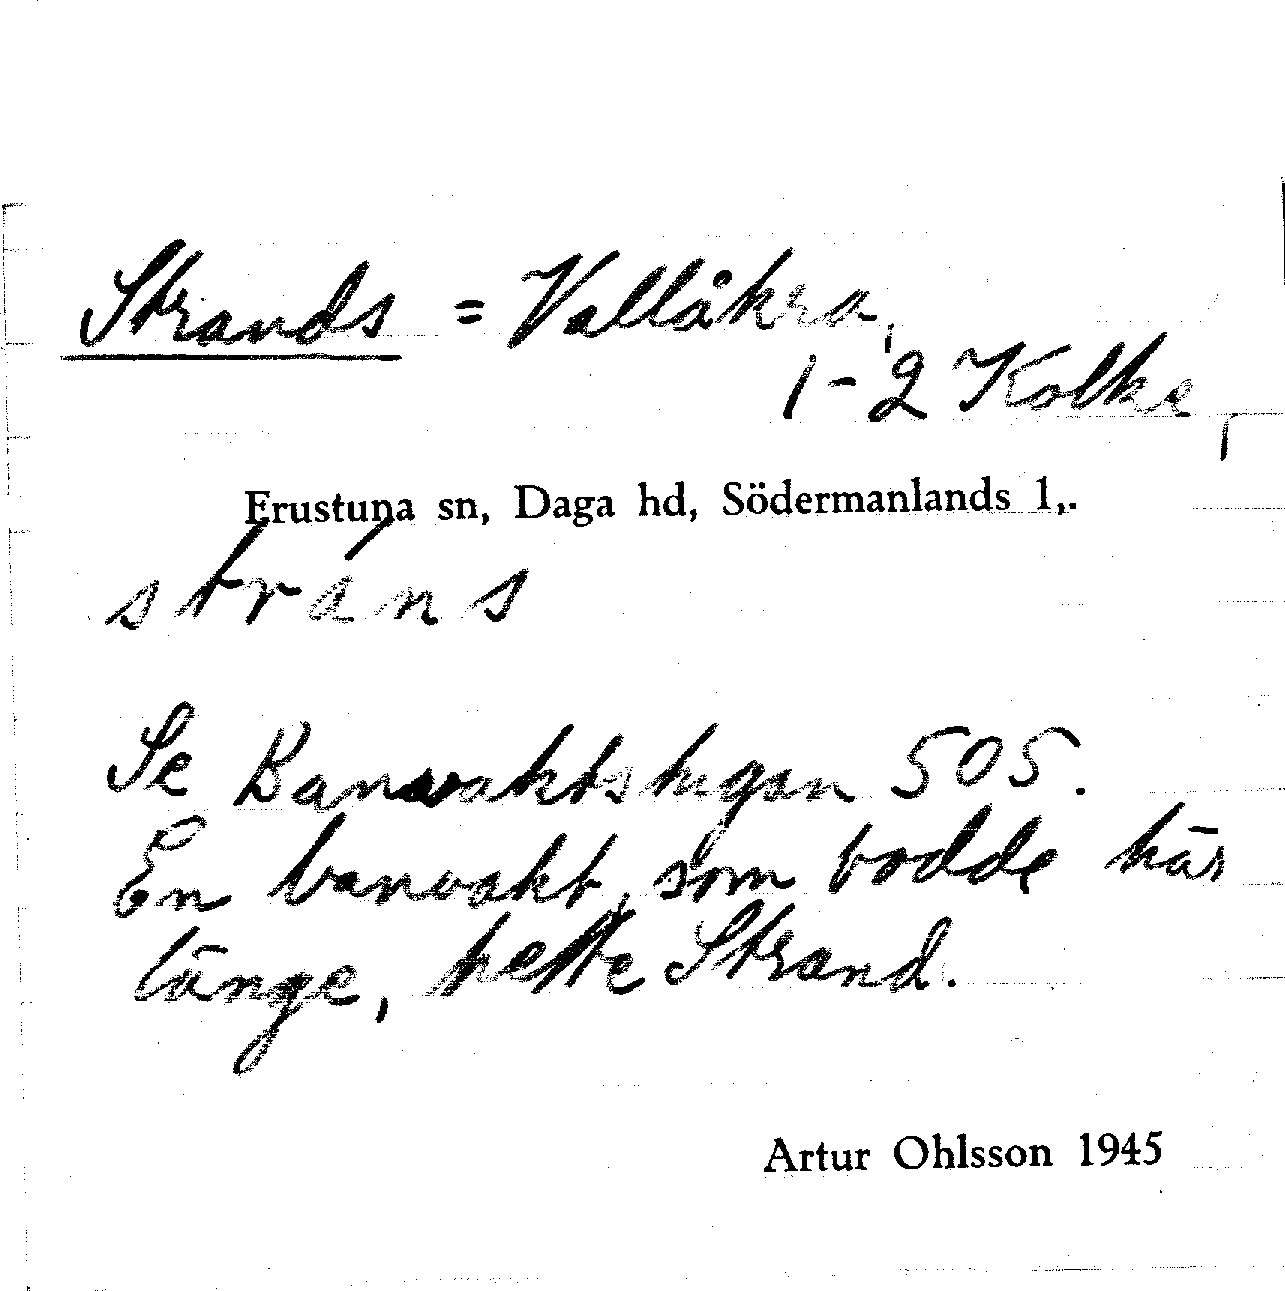 Strands = Vallåkra,
1-2 Kolke,
Frustuna sn, Daga hd, Södermanlands l,.
stráns
Se Banvaktstugan 505.
En banvakt, som bodde här
länge, hette Strand.
Artur Ohlsson 1945